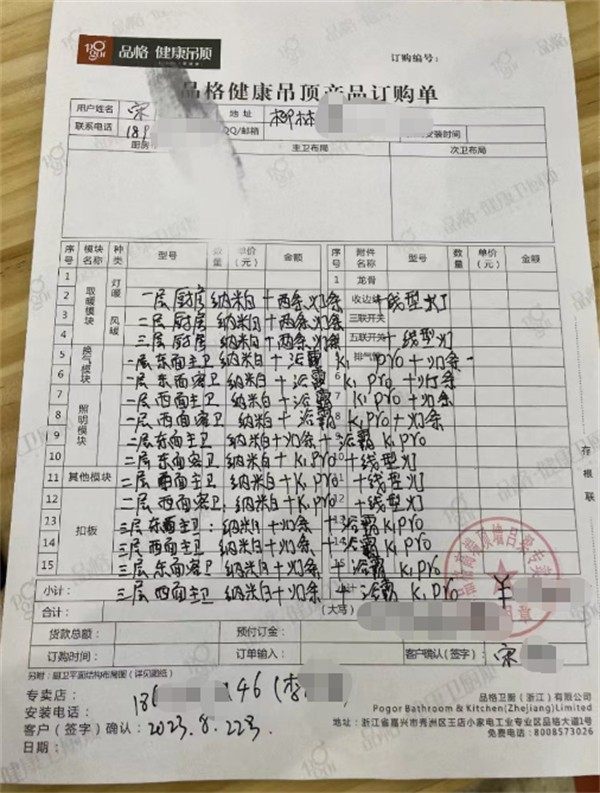 品格 健康吊顶
订购编号:
品格健康吊顶产品订购单
用户姓名 宋 地址 柳林
联系电话 189 QQ/邮箱 安装时间
厨房 主卫布局 次卫布局
序号 模块名称 种类 型号 数量 单价(元) 金额 序号 附件名称 型号 数量 单价(元) 金额
1 取暖模块 灯暖 1 龙骨
2 一层厨房 纳米白+两条灯条 收边线 +线型灯
3 风暖 二层厨房 纳米白+两条灯条 三联开关
4 三层厨房 纳米白+两条灯条 五联开关 +线型灯
5 换气模块 一层东面主卫 纳米白+浴霸 排气管 K1 pro+灯条
6 一层东面客卫 纳米白+浴霸 6 K1 pro+灯条
7 照明模块 一层西面主卫 纳米白+浴霸 7 K1 pro+灯条
8 一层西面客卫 纳米白+浴霸 8 K1 pro+灯条
9 二层东面主卫 纳米白+灯条+浴霸 K1 pro
10 二层东面客卫 纳米白+K1 pro 10 +线型灯
11 其他模块 二层西面主卫 纳米白+K1 pro +线型灯
12 二层西面客卫 纳米白+K1 pro +线型灯
13 扣板 三层东面主卫: 纳米白+灯条 +浴霸 K1 pro
14 三层西面主卫: 纳米白+灯条 +浴霸 K1 pro
15 三层东面客卫 纳米白+灯条 +浴霸 K1 pro
小计: 三层西面主卫 纳米白+灯条 +浴霸 K1 pro ¥
合计: (大写)
货款总额: 预付订金:
订购时间: 订单输入: 客户确认(签字): 宋
另附:厨卫平面结构布局图(详见图纸)
存根联
专卖店:
安装电话: 186 46(李
客户(签字)确认: 2023.8.22号
日期:
品格卫厨(浙江)有限公司
Pogor Bathroom & Kitchen(Zhejiang)Limited
地址:浙江省嘉兴市秀洲区王店小家电工业专业区品格大道1号
免费电话:8008573026